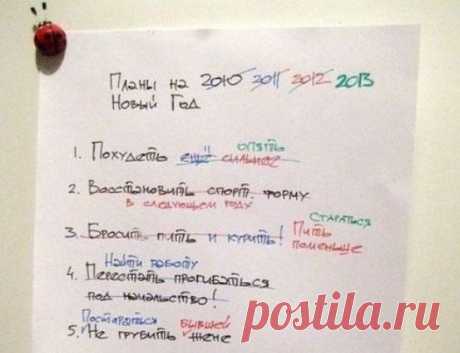 Планы на 2010 2011 2012 2013
Новый Год
опять
1. Похудеть ещё сильнее
2. Восстановить спорт. форму
в следующем году
Стараться
3. Бросить пить и курить! Пить поменьше
Найти работу
4. Перестать прогибаться
под начальство!
Постараться бывшей
5. Не грубить жене
postila.ru